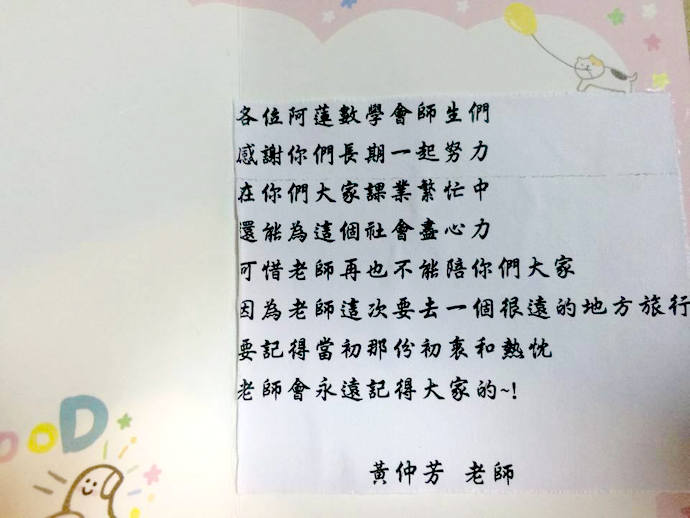 各位阿蓮數學會師生們
感謝你們長期一起努力
在你們大家課業繁忙中
還能為這個社會盡心力
可惜老師再也不能陪你們大家
因為老師這次要去一個很遠的地方旅行
要記得當初那份初衷和熱忱
老師會永遠記得大家的~!
黃仲芳 老師
OOD